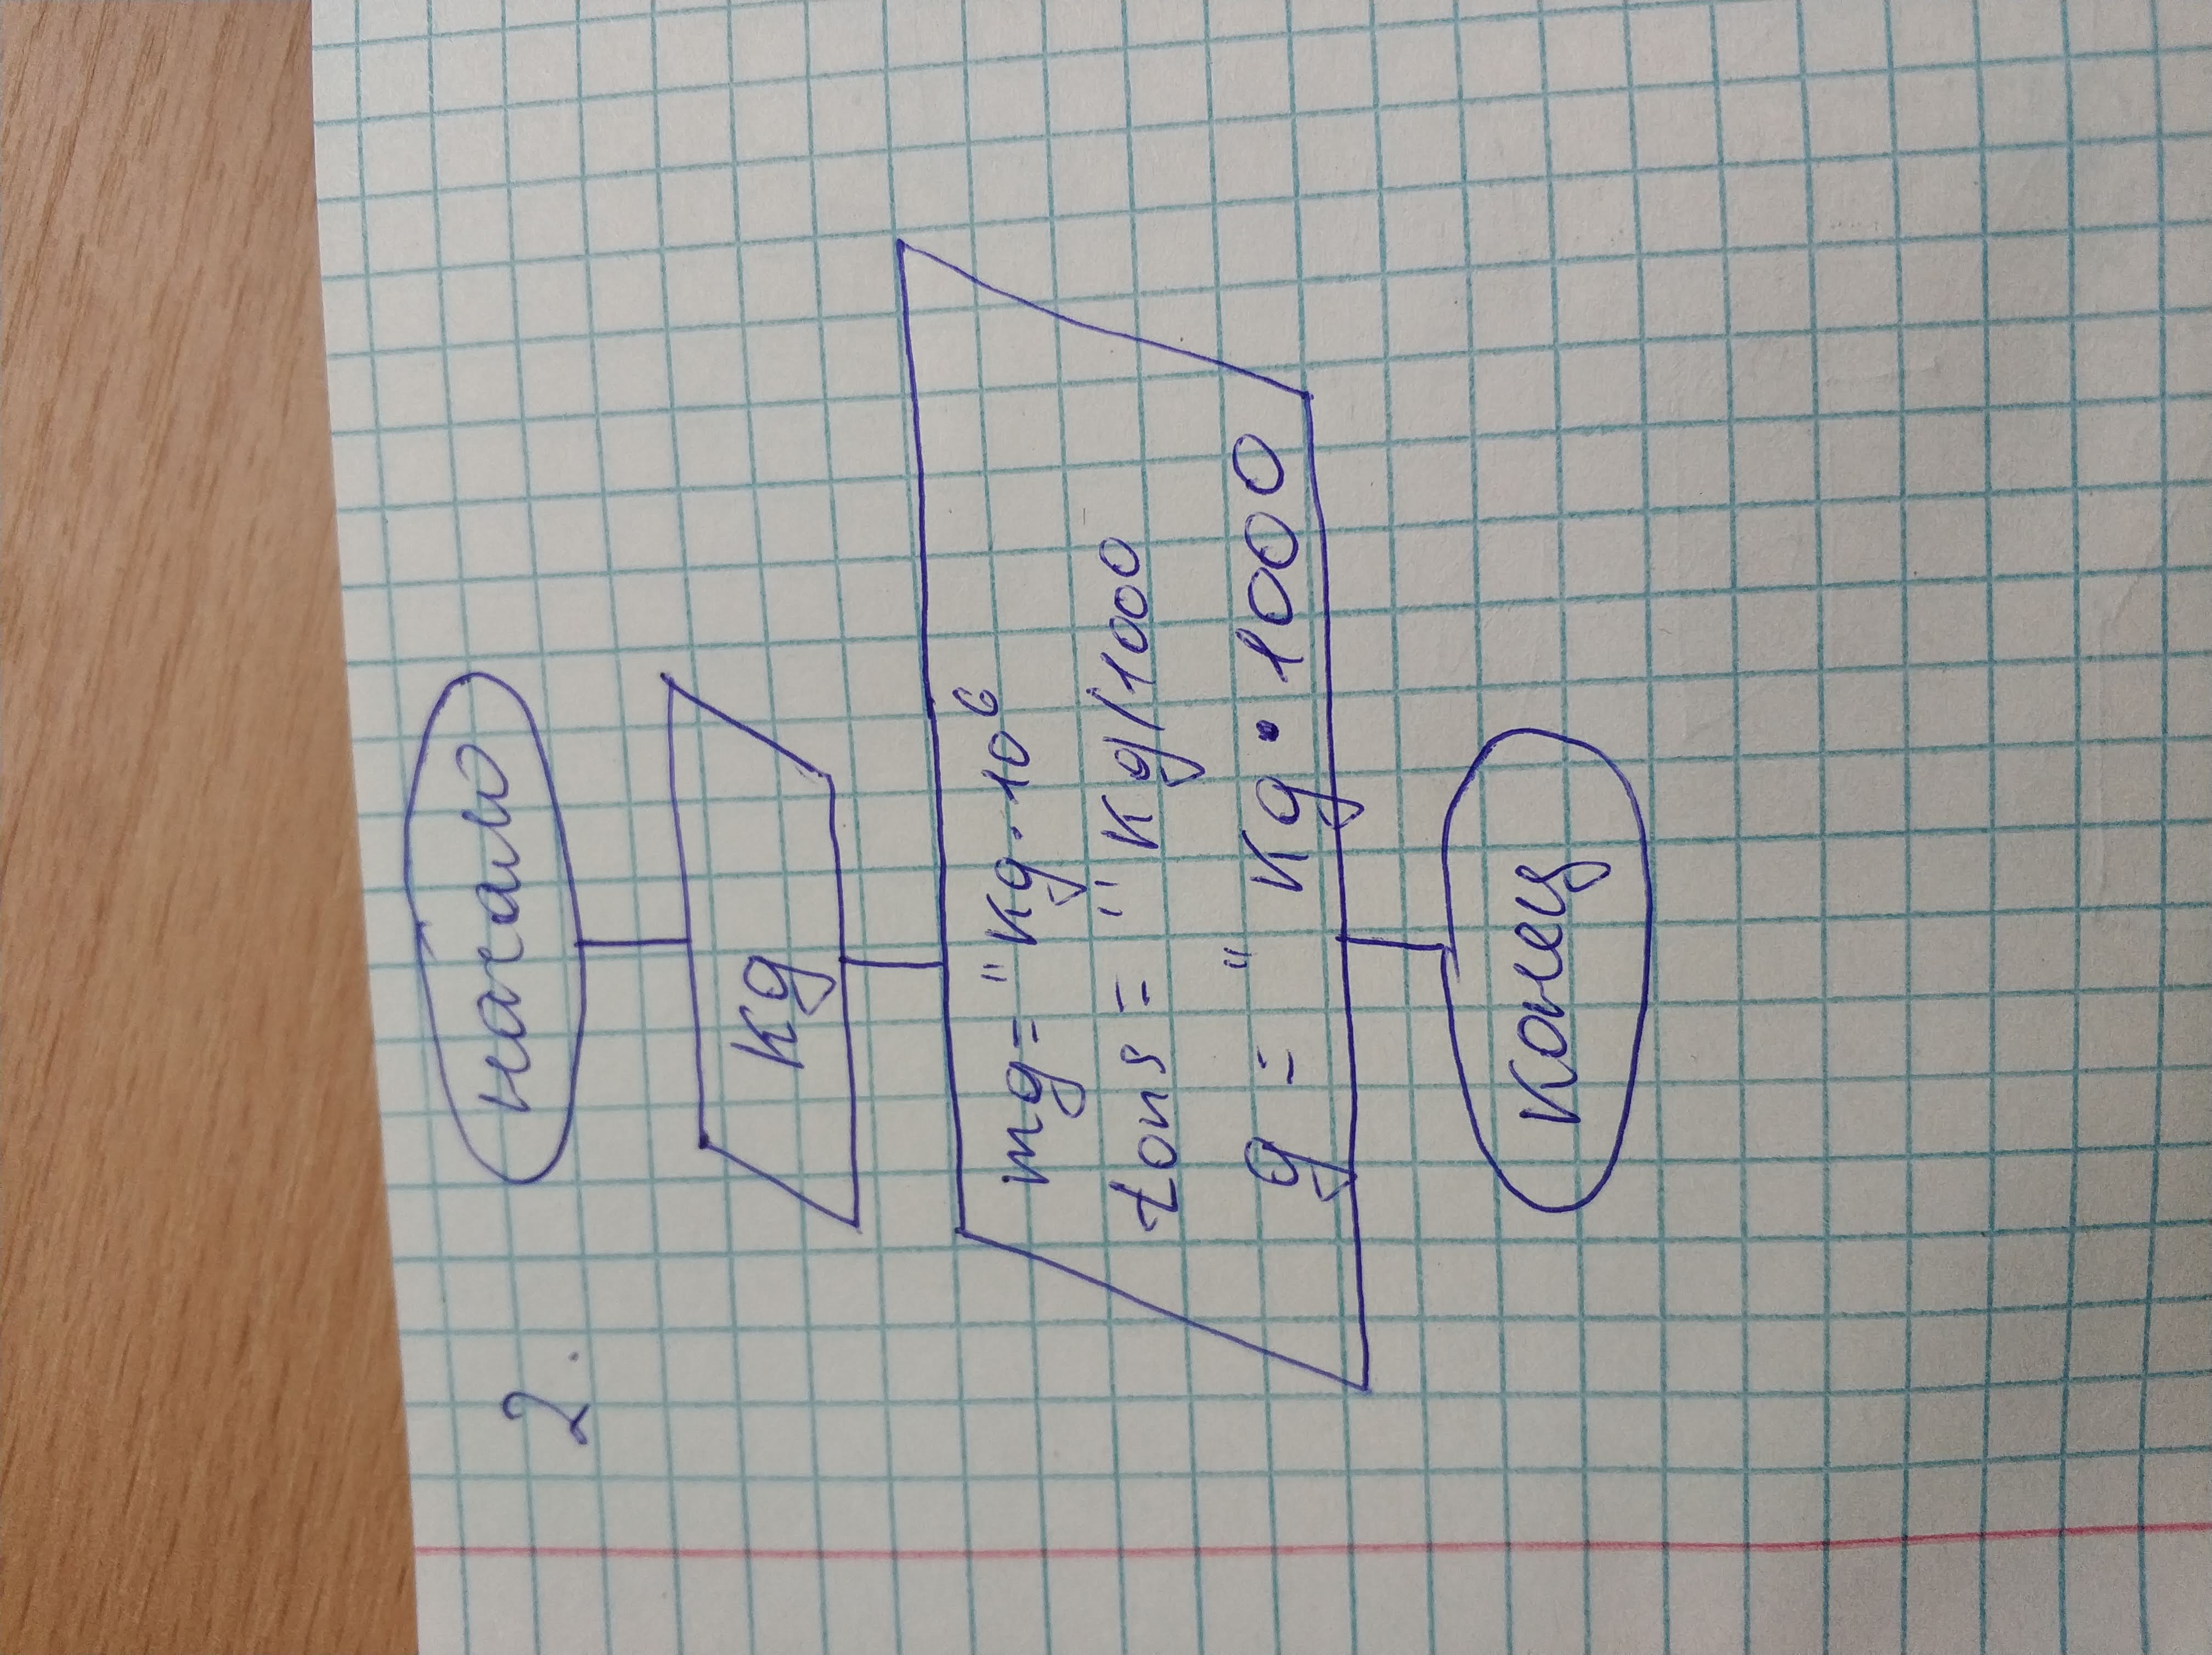 2.
начало
kg
mg = "kg · 10⁶
tons = "kg/1000
g = "kg · 1000
конец